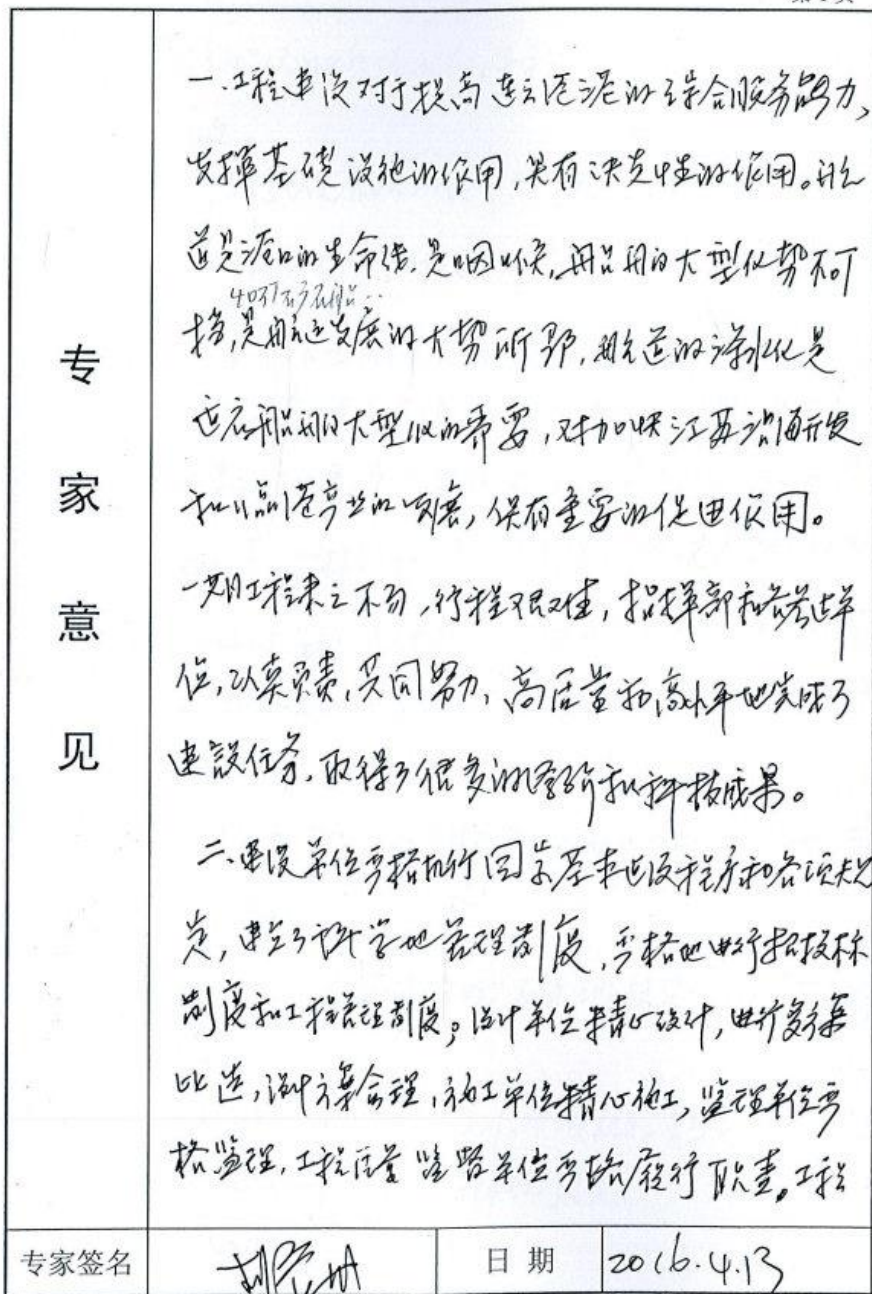 专家意见
一、工程建设对于提高连云港港的综合服务能力,
发挥基础设施的作用,具有决定性的作用。航
道是港口的生命线,是咽喉,船舶的大型化势不可
40万吨矿石船
挡,是航运发展的大势所趋,航道的深水化是
适应船舶大型化的需要,对加快江苏沿海开发
和临港产业的发展,具有重要的促进作用。
一期工程来之不易,行程艰难,指挥部和各参建单
位,认真负责,共同努力,高质量和高水平地完成了
建設任务,取得了很多的经验和科技成果。
二、建设单位严格执行国家基本建设程序和各项规
定,建立了科学地管理制度,严格地进行招投标
制度和工程管理制度。设计单位精心设计,进行多方案
比选,设计方案合理,施工单位精心施工,监理单位严
格监理,工程质量监督单位严格履行职责。工程
专家签名
日期 2016.4.13